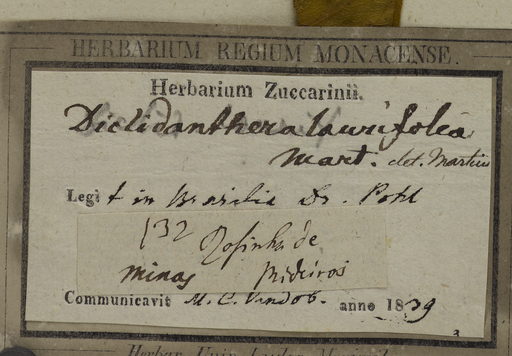 HERBARIUM REGIUM MONACENSE.
Herbarium Zuccarinii.
Diclidanthera laurifolia
Mart. det. Martius
Legit in Brasilia Dr. Pohl
132 de
Minas
Communicavit M. C. Vindob. anno 1839